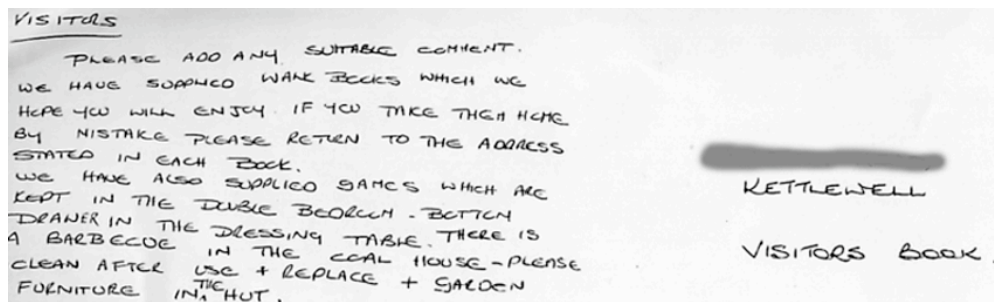 VISITORS
PLEASE ADD ANY SUITABLE COMMENT.
WE HAVE SUPPLIED WALK BOOKS WHICH WE
HOPE YOU WILL ENJOY. IF YOU TAKE THEM HOME
BY MISTAKE PLEASE RETURN TO THE ADDRESS
STATED IN EACH BOOK.
WE HAVE ALSO SUPPLIED GAMES WHICH ARE
KEPT IN THE DOUBLE BEDROOM - BOTTOM
DRAWER IN THE DRESSING TABLE. THERE IS
A BARBECUE IN THE COAL HOUSE - PLEASE
CLEAN AFTER USE + REPLACE + GARDEN
FURNITURE IN THE HUT.
KETTLEWELL
VISITORS BOOK.